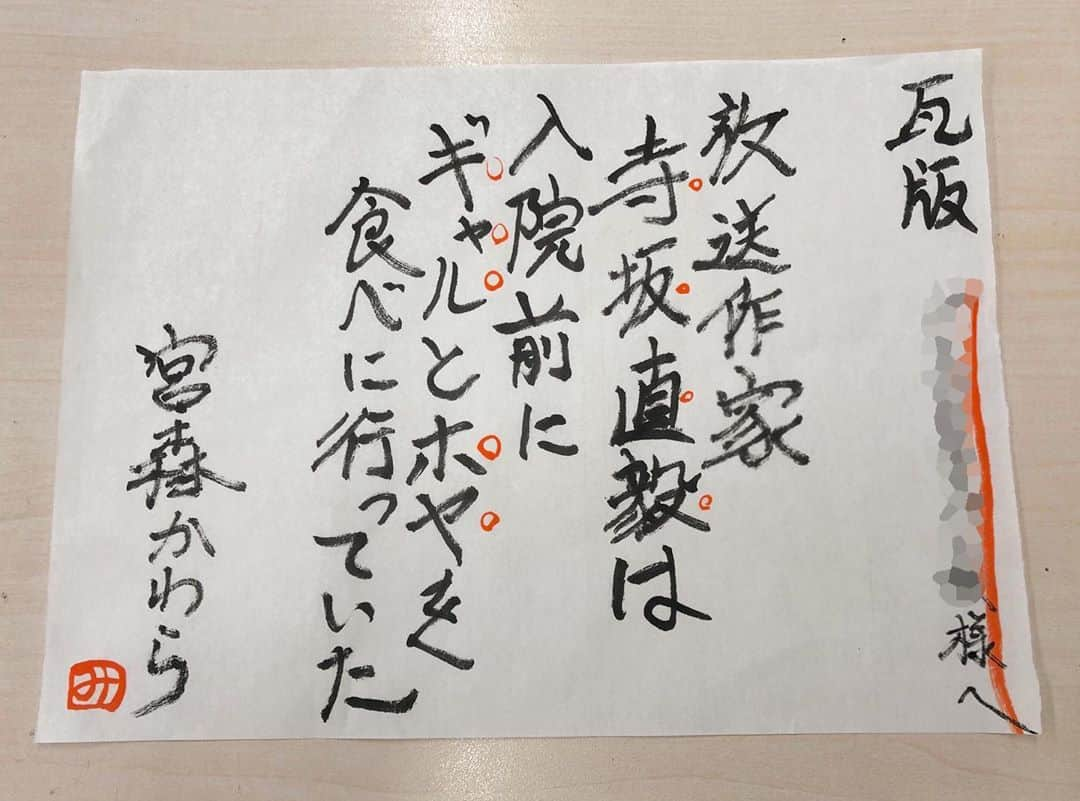 瓦版
様へ
放送作家
寺坂直毅は
入院前に
ギャルとホヤを
食べに行っていた
宮森かわら
み